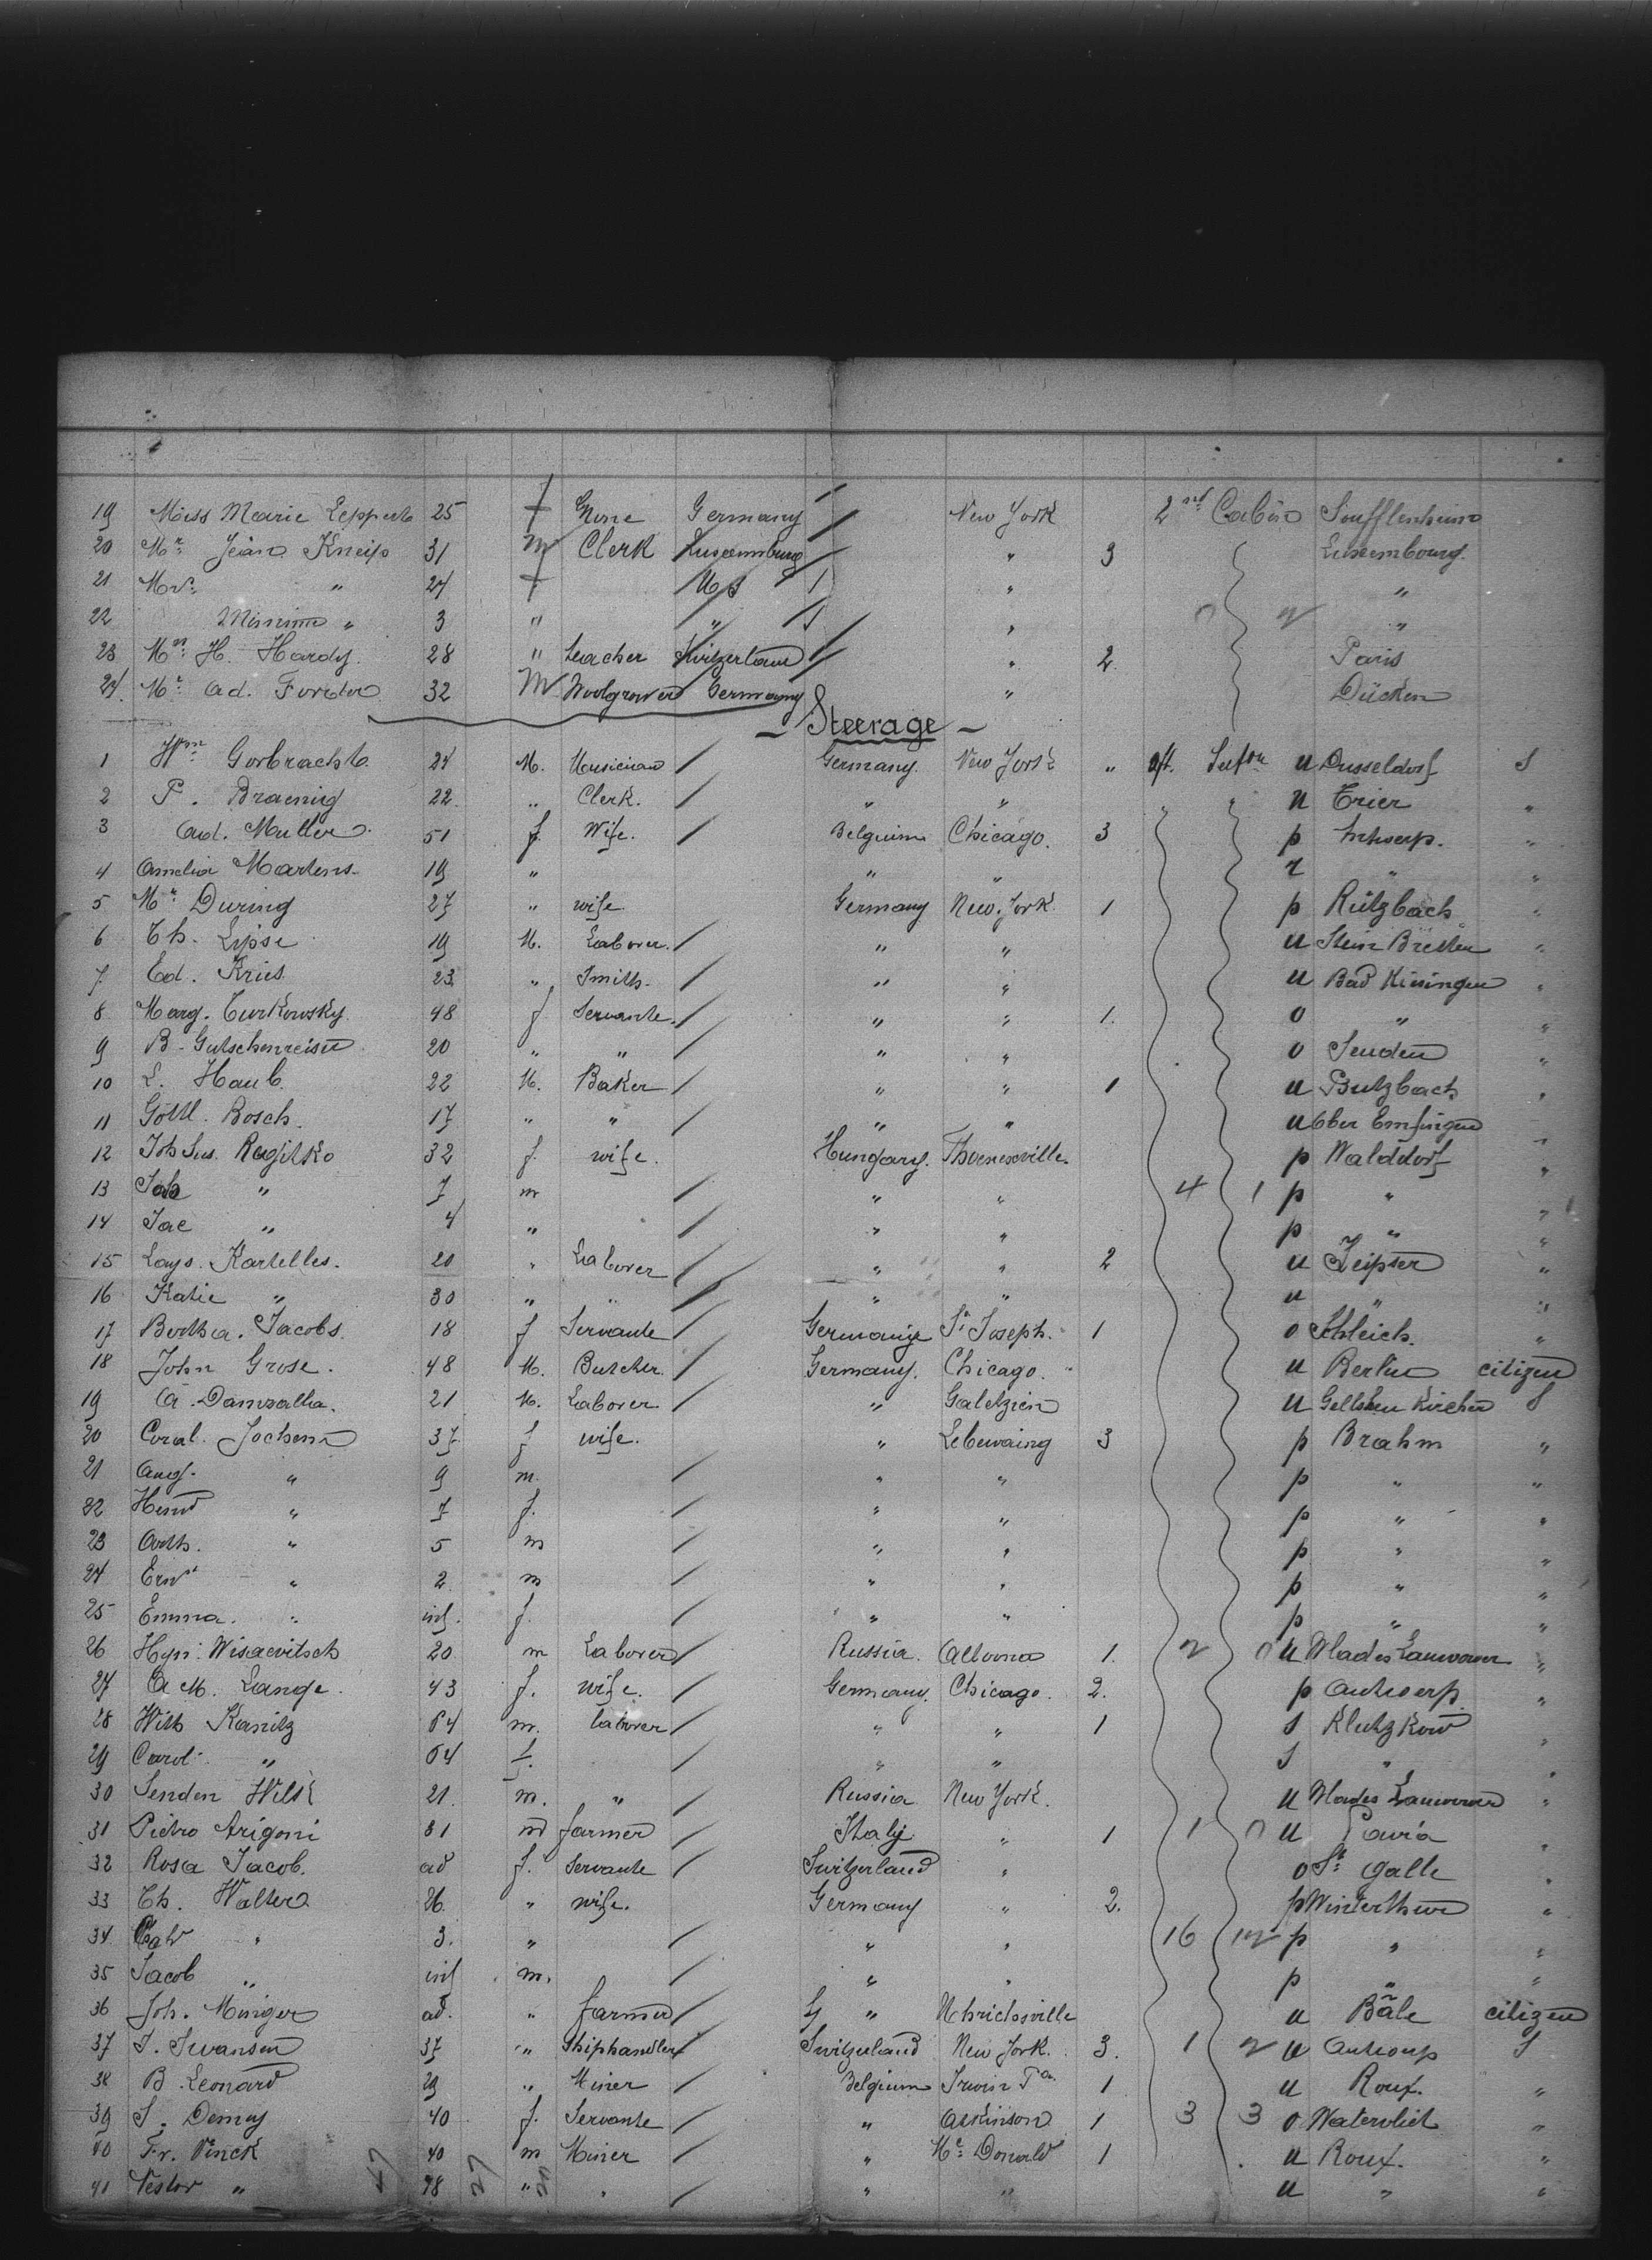 19 Miss Marie Leppert 25 f None Germany New York 2nd Cabin Soufflenheim
20 Mr. Jean Kneip 31 m Clerk Luxemburg " 3 Luxembourg.
21 Mrs. " 24 f U S " "
22 Minimie " 3 " " " "
23 Mr. H. Hardy. 28 " teacher Switzerland " 2. Paris
24. Mr. Ad. Forster 32 M Woolgrower Germany " Dücken
- Steerage -
1 Wm Gorbracht 24 M. Musician Germany. New York " aft. u Dusseldorf S
2 P. Braenig 22 " Clerk. " " " " u Trier "
3 Aud. Muller 51 f. Wife. Belgium Chicago. 3 p Antwerp. "
4 Amelia Martens. 19 " " " " "
5 Mr. During 27 " wife. Germany New York 1 p Rützbach "
6 Th. Lipse 19 M. Laborer. " " u Stein Bretten "
7. Ed. Kries 23 " Smith. " " u Bad Kissingen "
8 Marg. Turkowsky. 48 f Servante. " " 1. o " "
9 B. Gutschenreiser 20 " " " " o Senden "
10 L. Haub. 22 M. Baker " " 1 u Butzbach "
11 Gottl. Bosch. 17 " " " " u Ober Emfingen
12 Joh Sus. Ragitko 32 f. wife. Hungary. p Walddorf "
13 Joh " 7 m " " 4 1 p " "
14 Jac " 4 " " " p " "
15 Lays. Kartelles. 20 " Laborer " " 2 u Leipser "
16 Katie " 30 " " " " u " "
17 Bertha. Jacobs. 18 f Servante Germanije St Joseph. 1 o Schleich. "
18 John Grose. 48 M. Butcher. Germany. Chicago. u Berlin citizen
19 A. Damratha. 21 M. Laborer. " Galetzien u Kirchen S
20 Coral. Jochem 37 f wife. " Lebewaing 3 p Brahm "
21 Aug. " 9 m. " " p " "
22 " 7 f. " " p " "
23 Arth. " 5 m " " p " "
24 Ernst " 2 m " " p " "
25 Emma. " inf. f. " " p " "
26 Hyn: Wisaevitsch 20 m Laborer Russia. Altoona 1. 2 0 u "
27 A. M. Lange. 43 f. wife. Germany. Chicago. 2. p Antwerp "
28 Wilh Kanitz 64 m. laborer " " 1 s Klutzkow "
29 Carol. " 64 f. " " s " "
30 Senden Wilk 21 m. " Russia New York. u "
31 Pietro Arigoni 31 m farmer Italy " 1 1 0 u Pavia "
32 Rosa Jacob. ad f. Servante Switzerland " o St Galle "
33 Th. Walter 26 " wife. Germany " 2. p Winterthur "
34 " 3. " " " 16 12 p " "
35 Jacob " inf m. " " p " "
36 Joh. Minger ad. " farmer " Uhrichsville u Bâle citizen
37 J. Swanson 37 " Shiphandler Switzerland New York. 3. 1 2 u Antwerp S
38 B. Leonard 29 " Miner Belgium Irwin Pa 1 u Roux. "
39 S. Demey 40 f. Servante " Atkinson 1 3 3 o Watervliet "
40 Fr. Vinck 40 m Miner " Mc. Donald 1 u Roux. "
41 Nestor " 28 " " " " u " "